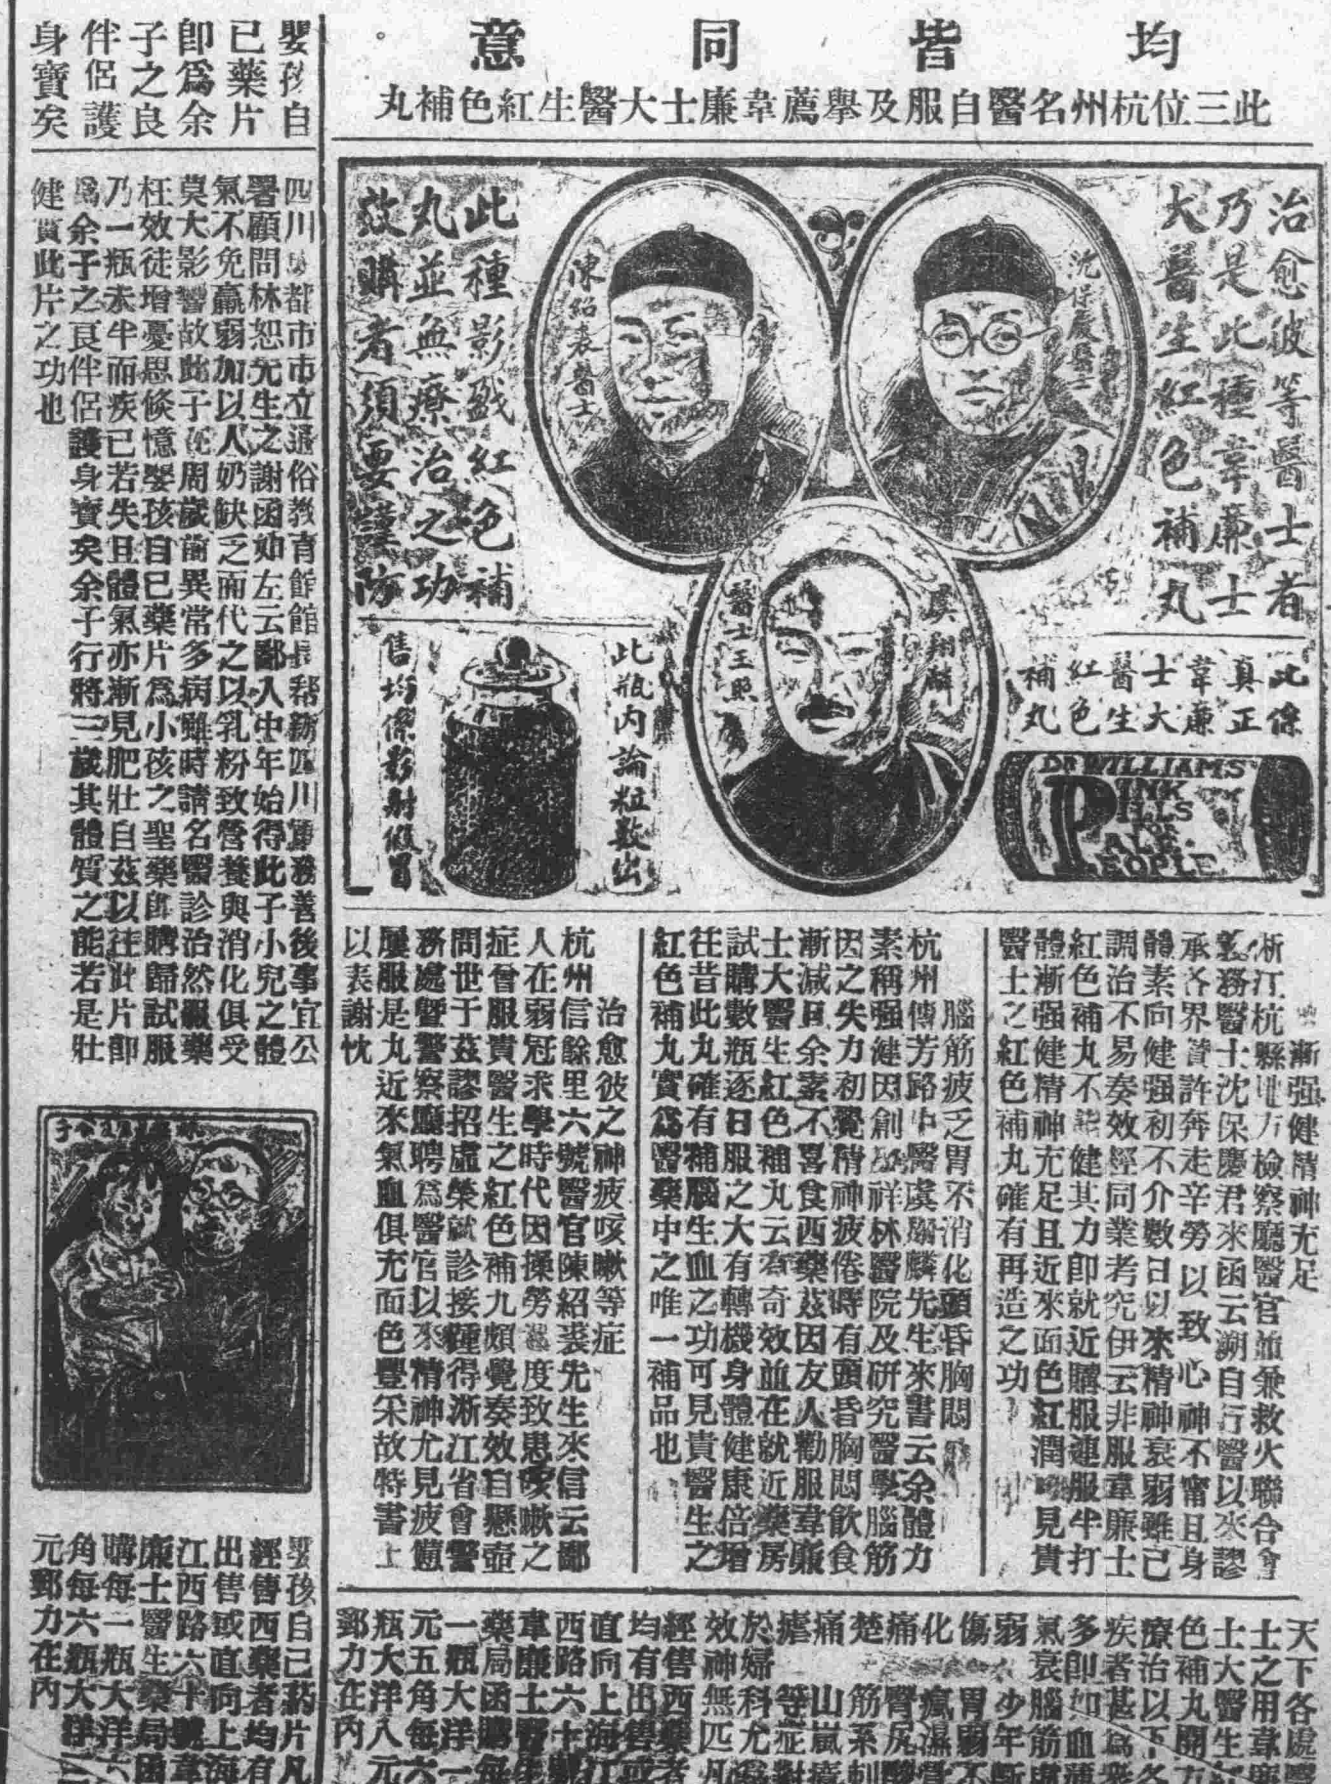 均皆同意
此三位杭州名醫自服及舉薦韋廉士大醫生紅色補丸
治愈彼等醫士者
乃是此種韋廉士
大醫生紅色補丸
沈保慶醫士
陳紹裘醫士
虞翔麟
醫士玉照
此種影戤紅色補
丸並無療治之功
效購者須要謹防
此係
真正
韋廉
士大
醫生
紅色
補丸
DR WILLIAMS'
PINK
PILLS
FOR
PALE
PEOPLE
此瓶內論粒數出
售均係影射假冒
漸强健精神充足
浙江杭縣地方檢察廳醫官並兼救火聯合會
義務醫士沈保慶君來函云溯自行醫以來謬
承各界贊許奔走辛勞以致心神不甯且身
體素向健强初不介數日以來精神衰弱雖己
調治不易奏效經同業考究伊云非服韋廉士
紅色補丸不能健其力卽就近購服連服半打
體漸强健精神充足且近來面色紅潤見貴
醫士之紅色補丸確有再造之功
腦筋疲乏胃不消化頭昏胸悶
杭州傳芳路中醫虞翔麟先生來書云余體力
素稱强健因創祥林醫院及研究醫學腦筋
因之失力初覺精神疲倦時有頭昏胸悶飲食
漸減且余素不喜食西藥茲因友人勸服韋廉
士大醫生紅色補丸云有奇效並在就近藥房
試購數瓶逐日服之大有轉機身體健康倍增
往昔此丸確有補腦生血之功可見貴醫生之
紅色補丸實爲醫藥中之唯一補品也
治愈彼之神疲咳嗽等症
杭州信餘里六號醫官陳紹裘先生來信云鄙
人在弱冠求學時代因操勞過度致患咳嗽之
症曾服貴醫生之紅色補丸頗覺奏效自懸壺
問世于茲謬招虛榮就診接踵得浙江省會警
務處暨警察廳聘爲醫官以來精神尤見疲憊
屢服是丸近來氣血俱充面色豐采故特書上
以表謝忱
天下各處醫
士之用韋廉
士大醫生紅
色補丸開方
療治以下各
疾者甚爲衆
多卽如血薄
氣衰腦筋虛
弱少年斷
傷胃弱不
化瘋濕骨
痛臀尻酸
楚筋系刺
痛山嵐瘴
瘧等症對
於婦科尤爲
效神無匹凡
經售西藥者
均有出售或
直向上海江
西路六十號
韋廉士醫生
藥局函購每
一瓶大洋一
元五角每六
瓶大洋八元
郵力在內
嬰孩自
已藥片
卽爲余
子之良
伴侶護
身寶矣
四川成都市市立通俗教育館館長幫辦四川軍務善後事宜公
署顧問林恕先生之謝函如左云鄙人中年始得此子小兒之體
氣不免羸弱加以人奶缺乏而代之以乳粉致營養與消化俱受
莫大影響故此子在周歲前異常多病雖時請名醫診治然服藥
枉效徒增憂思倏憶嬰孩自已藥片爲小孩之聖藥卽購歸試服
乃一瓶未半而疾已若失且體氣亦漸見肥壯自茲以往此片卽
爲余子之良伴侶護身寶矣余子行將三歲其體質之能若是壯
健實此片之功也
嬰孩自己葯片凡
經售西藥者均有
出售或直向上海
江西路六十號韋
廉士醫生藥局函
購每一瓶大洋六
角每六瓶大洋三
元郵力在內